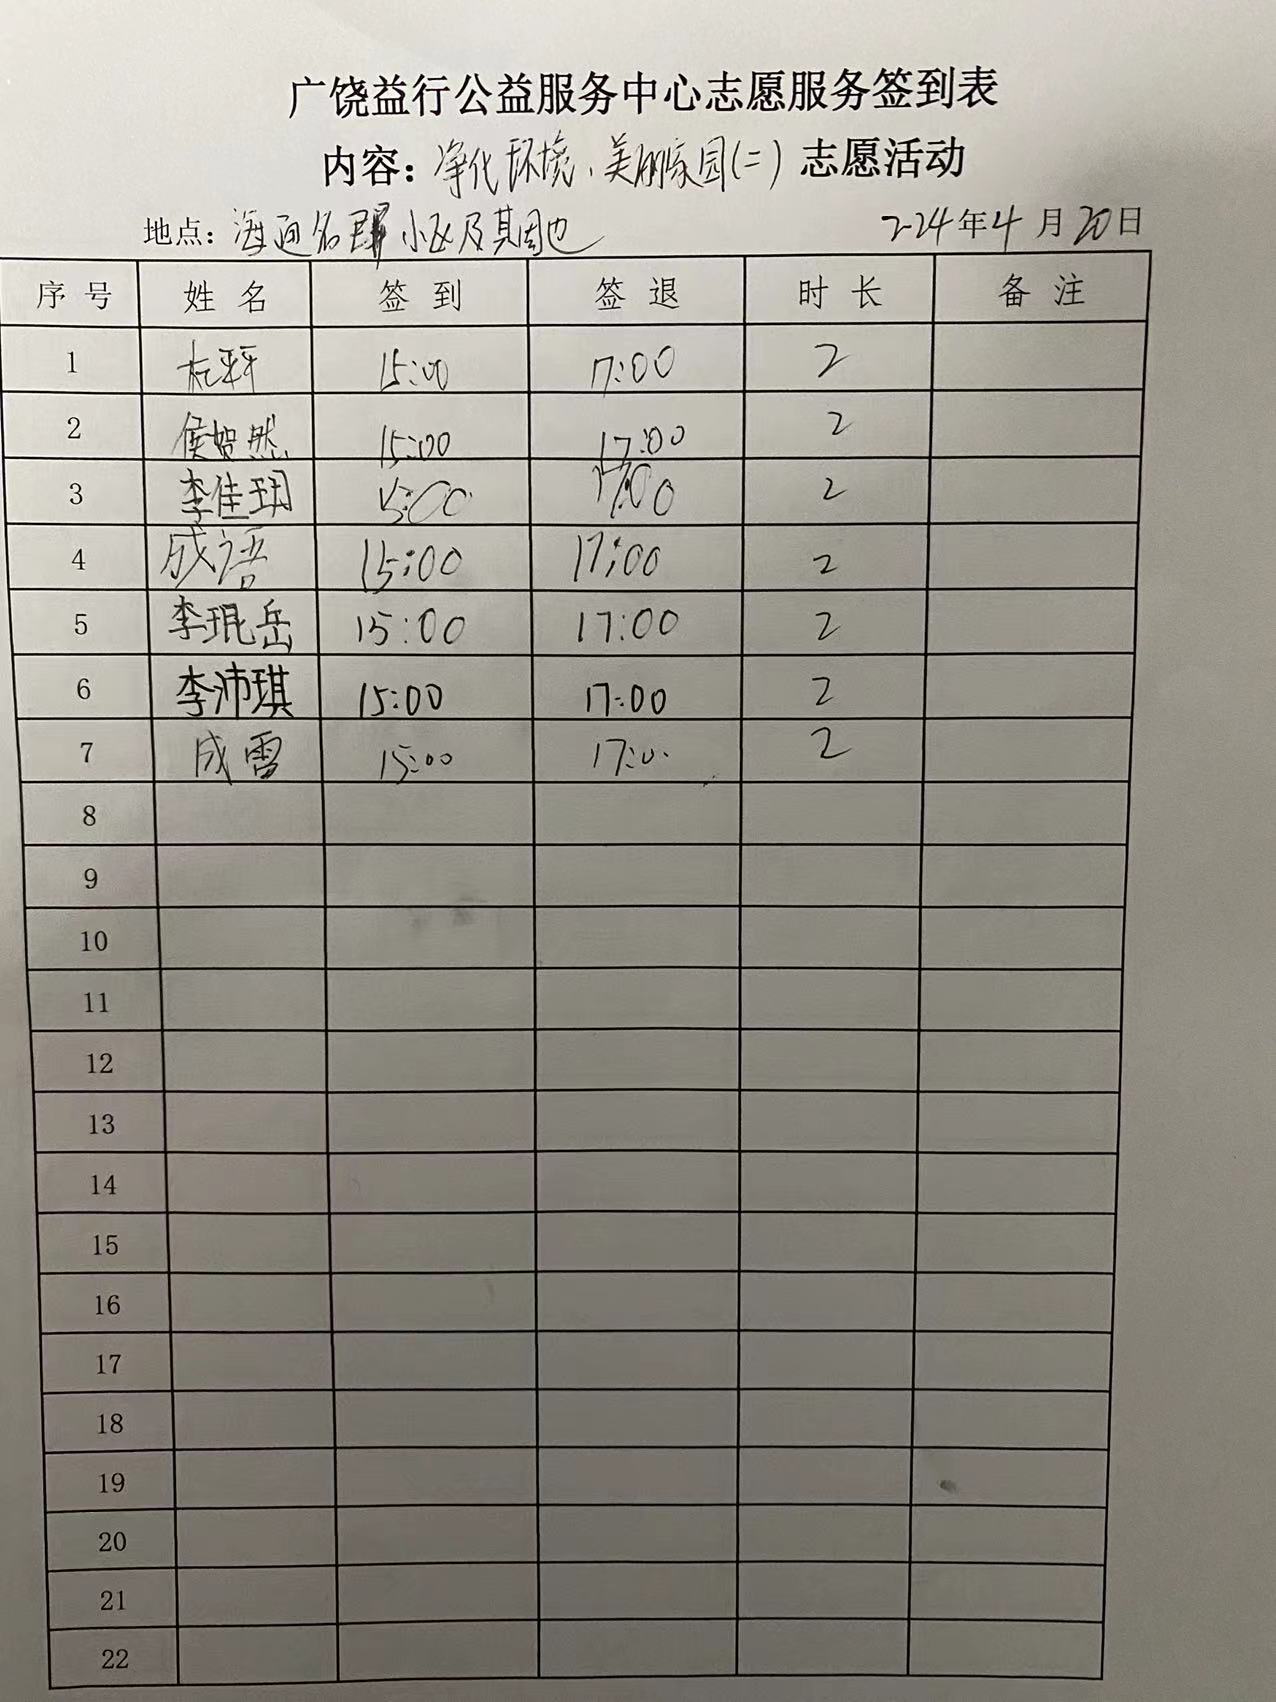 广饶益行公益服务中心志愿服务签到表
内容：净化环境、美丽家园(二)志愿活动
地点：海通名郡小区及其周边 2024年4月20日
序号 姓名 签到 签退 时长 备注
1 15:00 17:00 2
2 侯贺然 15:00 17:00 2
3 李佳玥 15:00 17:00 2
4 成语 15:00 17:00 2
5 李琨岳 15:00 17:00 2
6 李沛琪 15:00 17:00 2
7 成雪 15:00 17:00 2
8
9
10
11
12
13
14
15
16
17
18
19
20
21
22